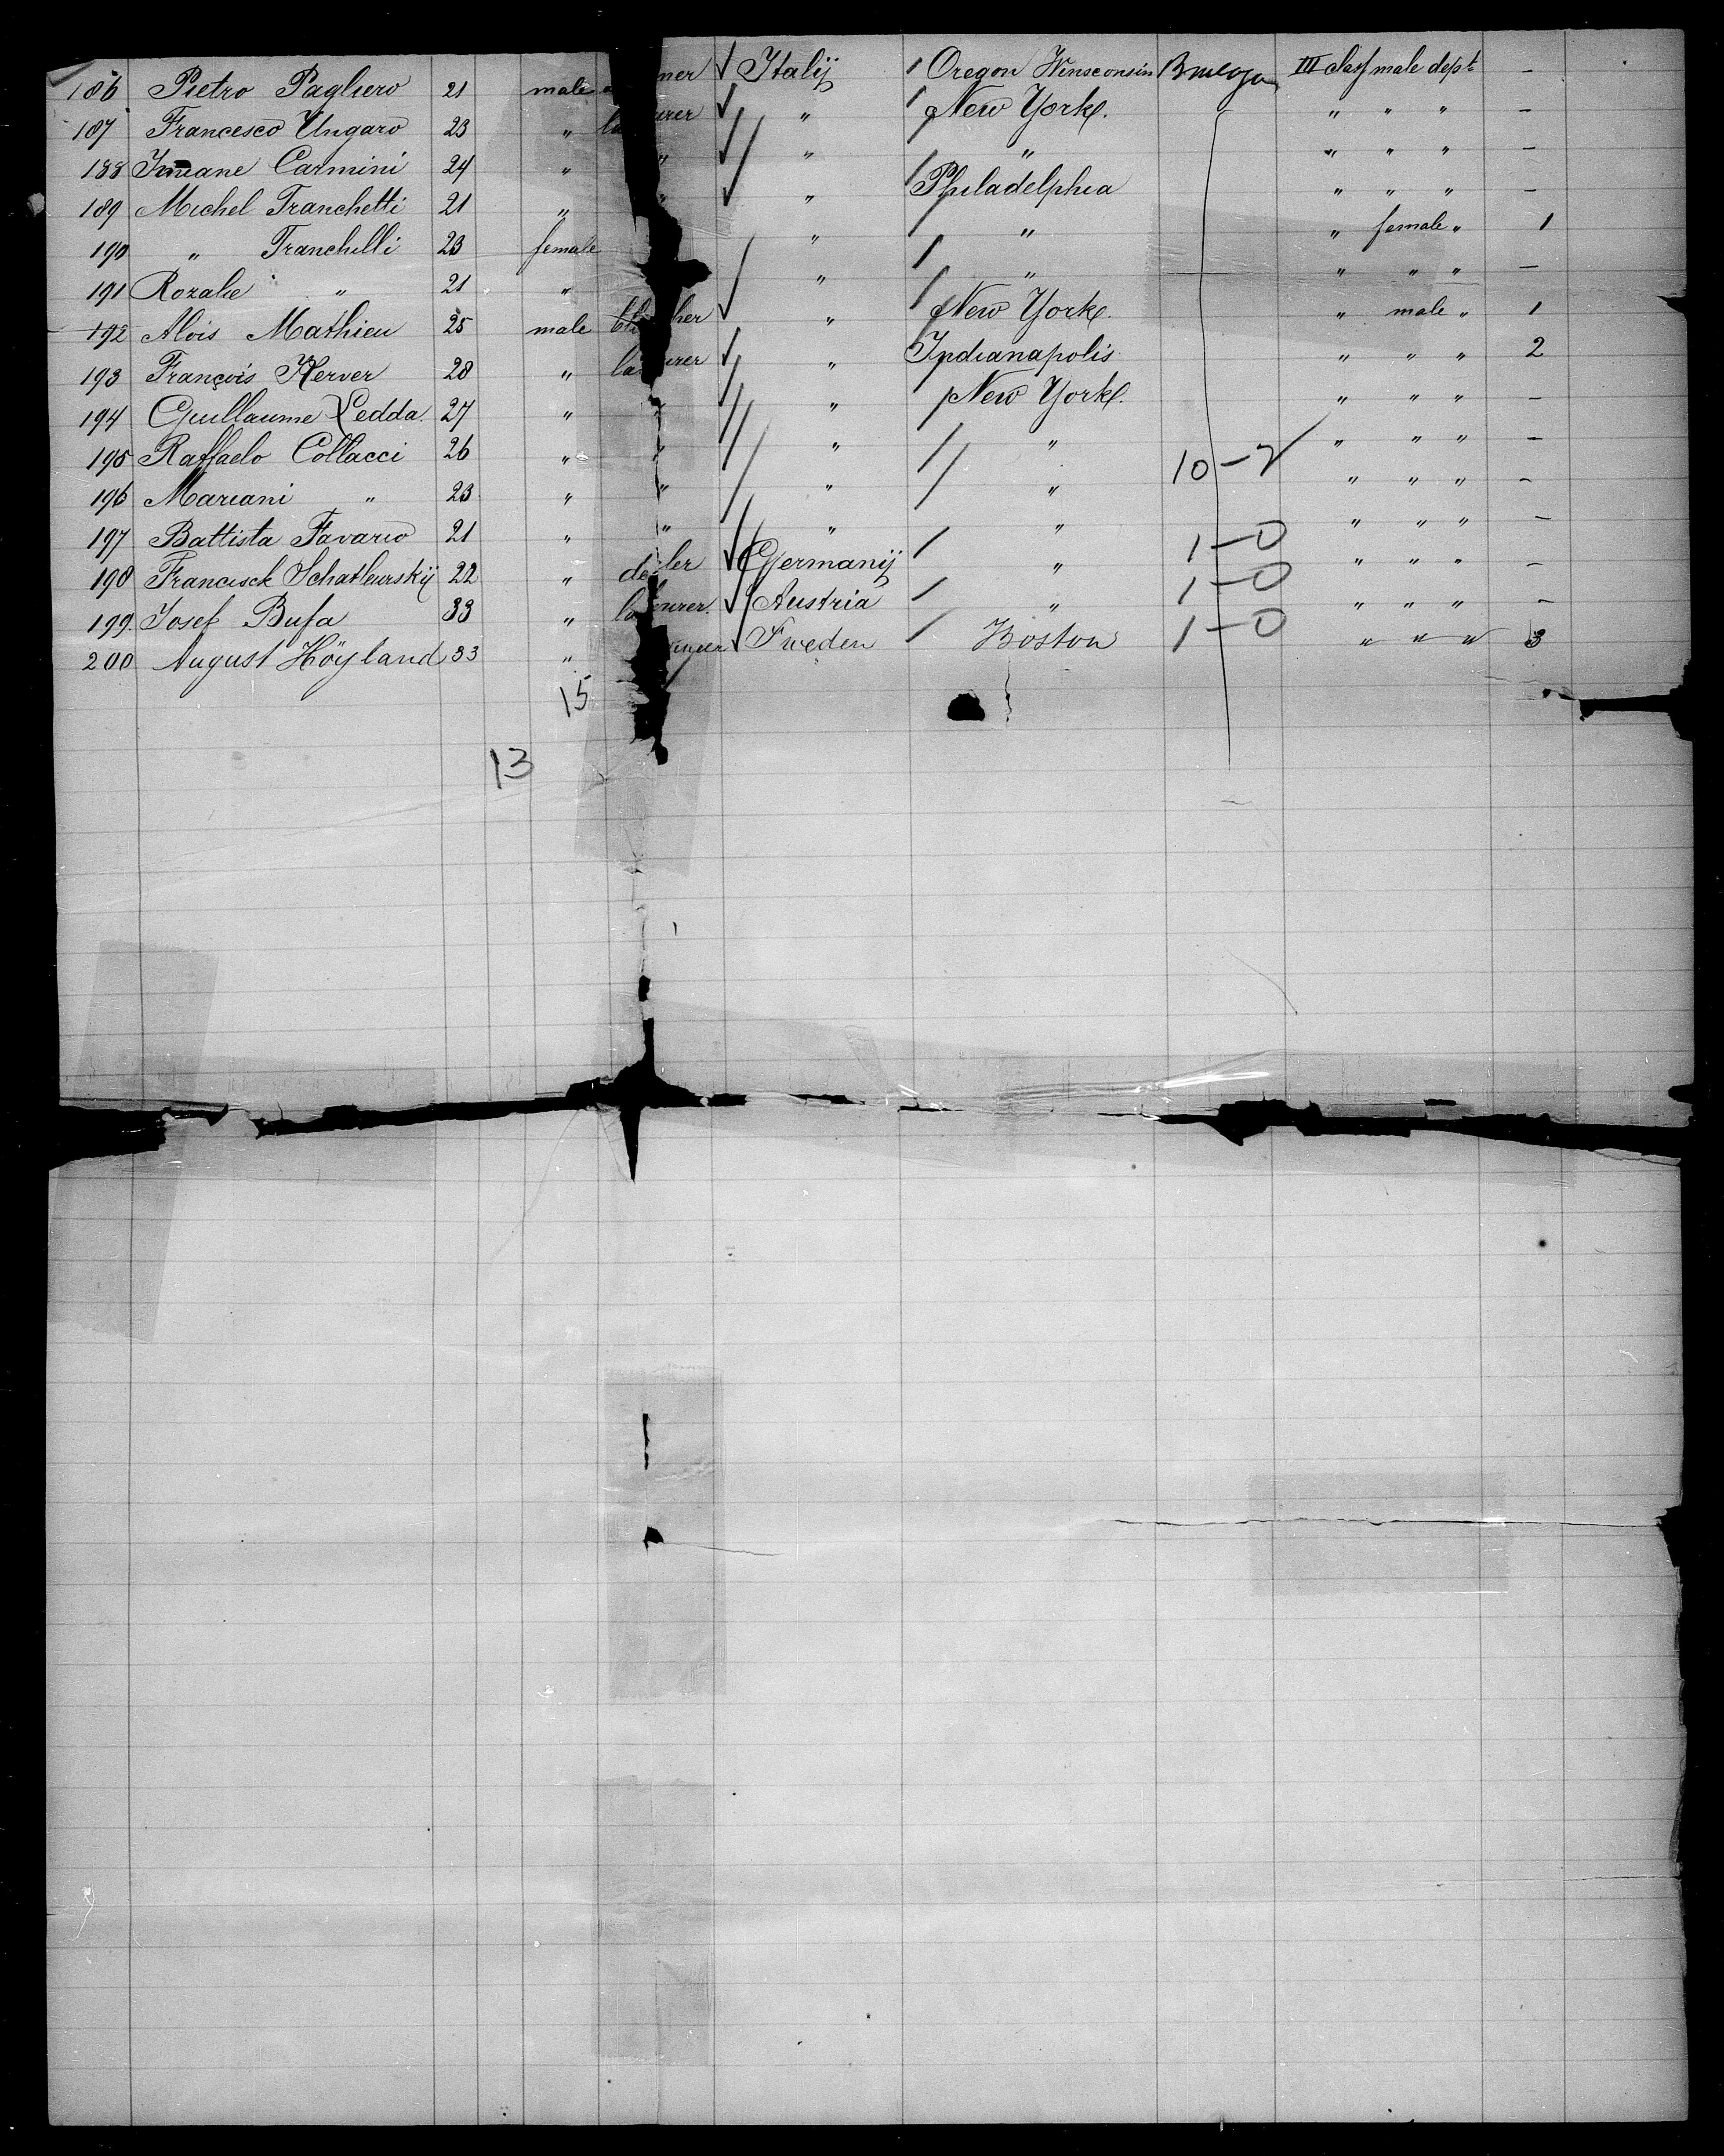 186 Pietro Pagliero 21 male Italij Oregon Winsconsin III class male dept. —
187 Francesco Ungaro 23 " " New York. " " " —
188 Carmini 24 " " " " " " " —
189 Michel Tranchetti 21 " " " Philadelphia " " " —
190 " Tranchilli 23 female " " " female " 1
191 Rozalie " 21 " " " " " " —
192 Alois Mathieu 25 male " New York. " male " 1
193 François Kerver 28 " " Indianapolis " " " 2
194 Guillaume Ledda. 27 " " New York. " " " —
195 Raffaelo Collacci 26 " " " " " " " —
196 Mariani " 23 " " " " 10-2 " " " —
197 Battista Favario 21 " " " " " " " —
198 Francisck 22 " Germanij " 1-0 " " " —
199. Josef Bufa 33 " Austria " 1-0 " " " —
200 August Höyland 33 " Sweden Boston 1-0 " " " 3
15
13